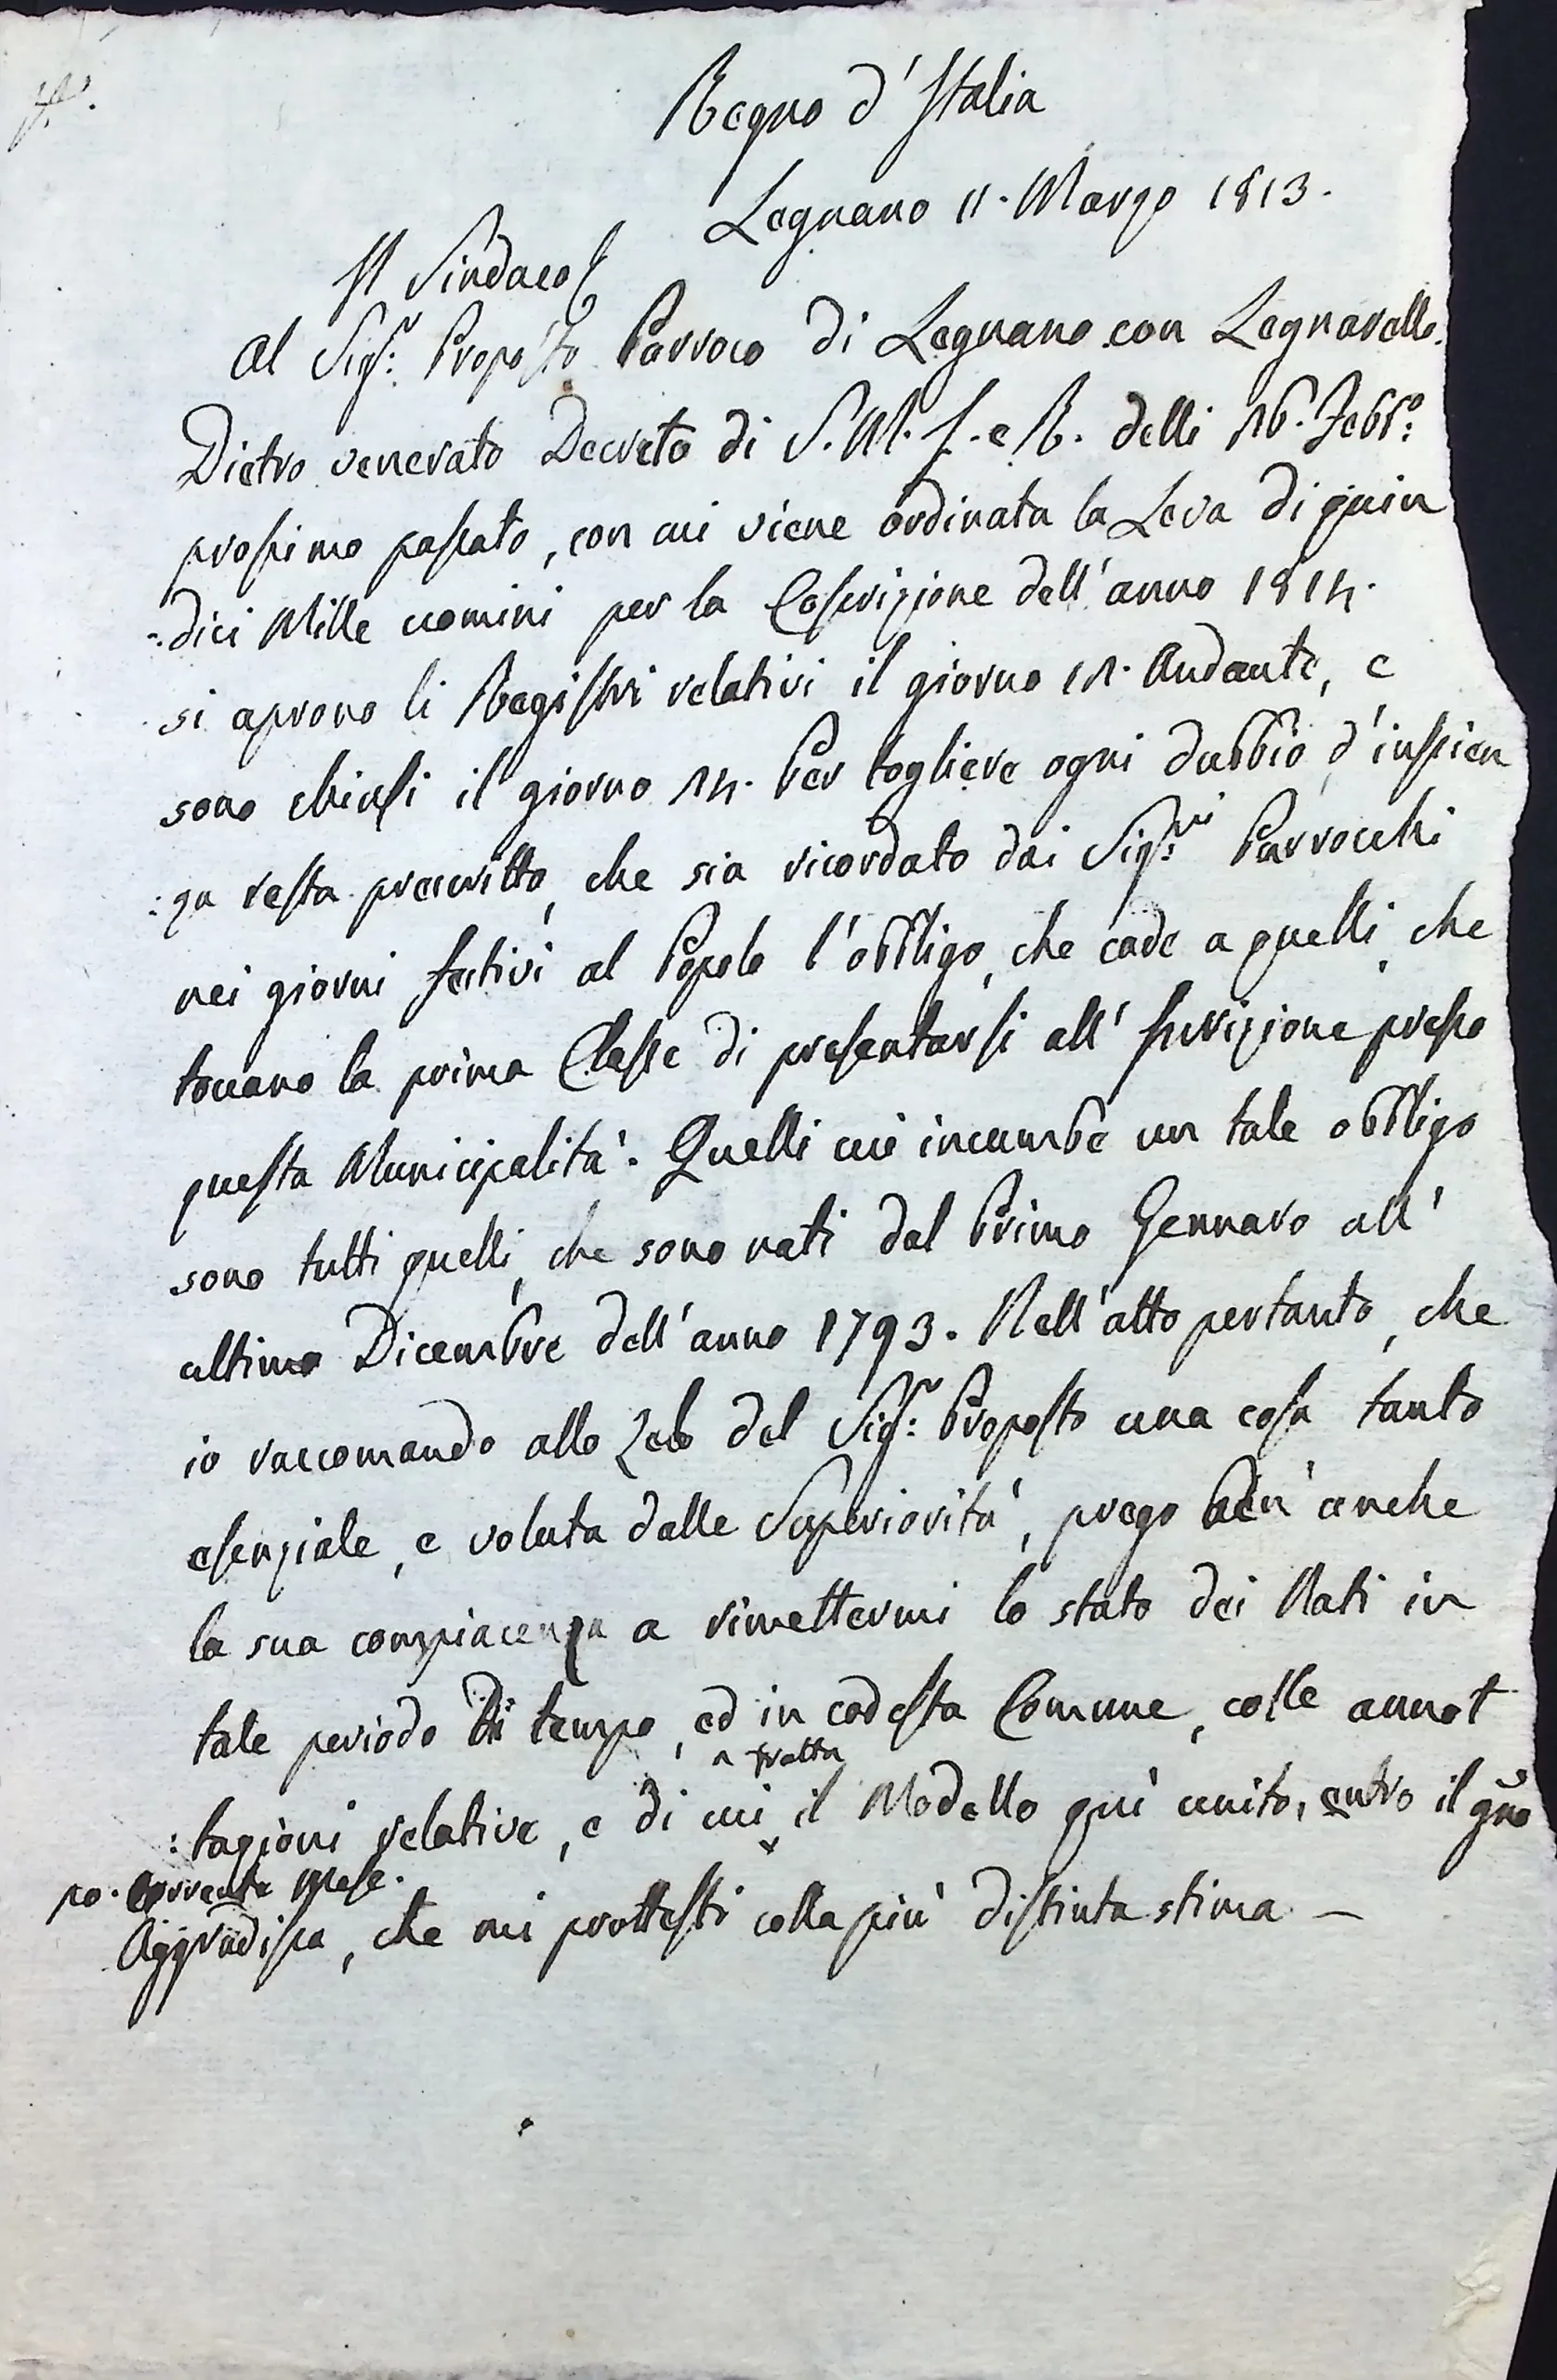 Regno d'Italia
Legnano 11. Marzo 1813.
Il Sindaco
Al Sigr: Proposto Parroco di Legnano con Legnarello.
Dietro venerato Decreto di S. M. I. e R. delli 26. Febbro:
prossimo passato, con cui viene ordinata la Leva di quin
:dici Mille uomini per la Coscrizione dell'anno 1814.
si aprono li Registri relativi il giorno 12. Andante, e
sono chiusi il giorno 24. Per togliere ogni dubbio d'inscien
:za resta prescritto, che sia ricordato dai Sigri: Parrochi
nei giorni festivi al Popolo l'obbligo, che cade a quelli, che
toccano la prima Classe di presentarsi all'Iscrizione presso
questa Municipalità. Quelli cui incumbe un tale obbligo
sono tutti quelli, che sono nati dal Primo Gennaro all'
ultimo Dicembre dell'anno 1793. Nell'atto pertanto, che
io raccomando allo Zelo del Sigr: Proposto una cosa tanto
esenziale, e voluta dalle Superiorità, prego ben'anche
la sua compiacenza a rimettermi lo stato dei Nati in
tale periodo di tempo, ed in codesta Comune, colle annot
a tratta
:tazioni relative, e di cui il Modello qui unito, entro il gno
po. Corrente Mese.
Aggradisca, che mi protesti colla più distinta stima —